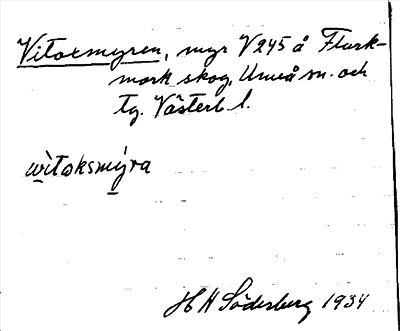 Vitoxmyren, myr V245 å Flurk-
mark skog, Umeå sn. och
tg. Västerb l.
wìtoksmýra
H H Söderberg 1934